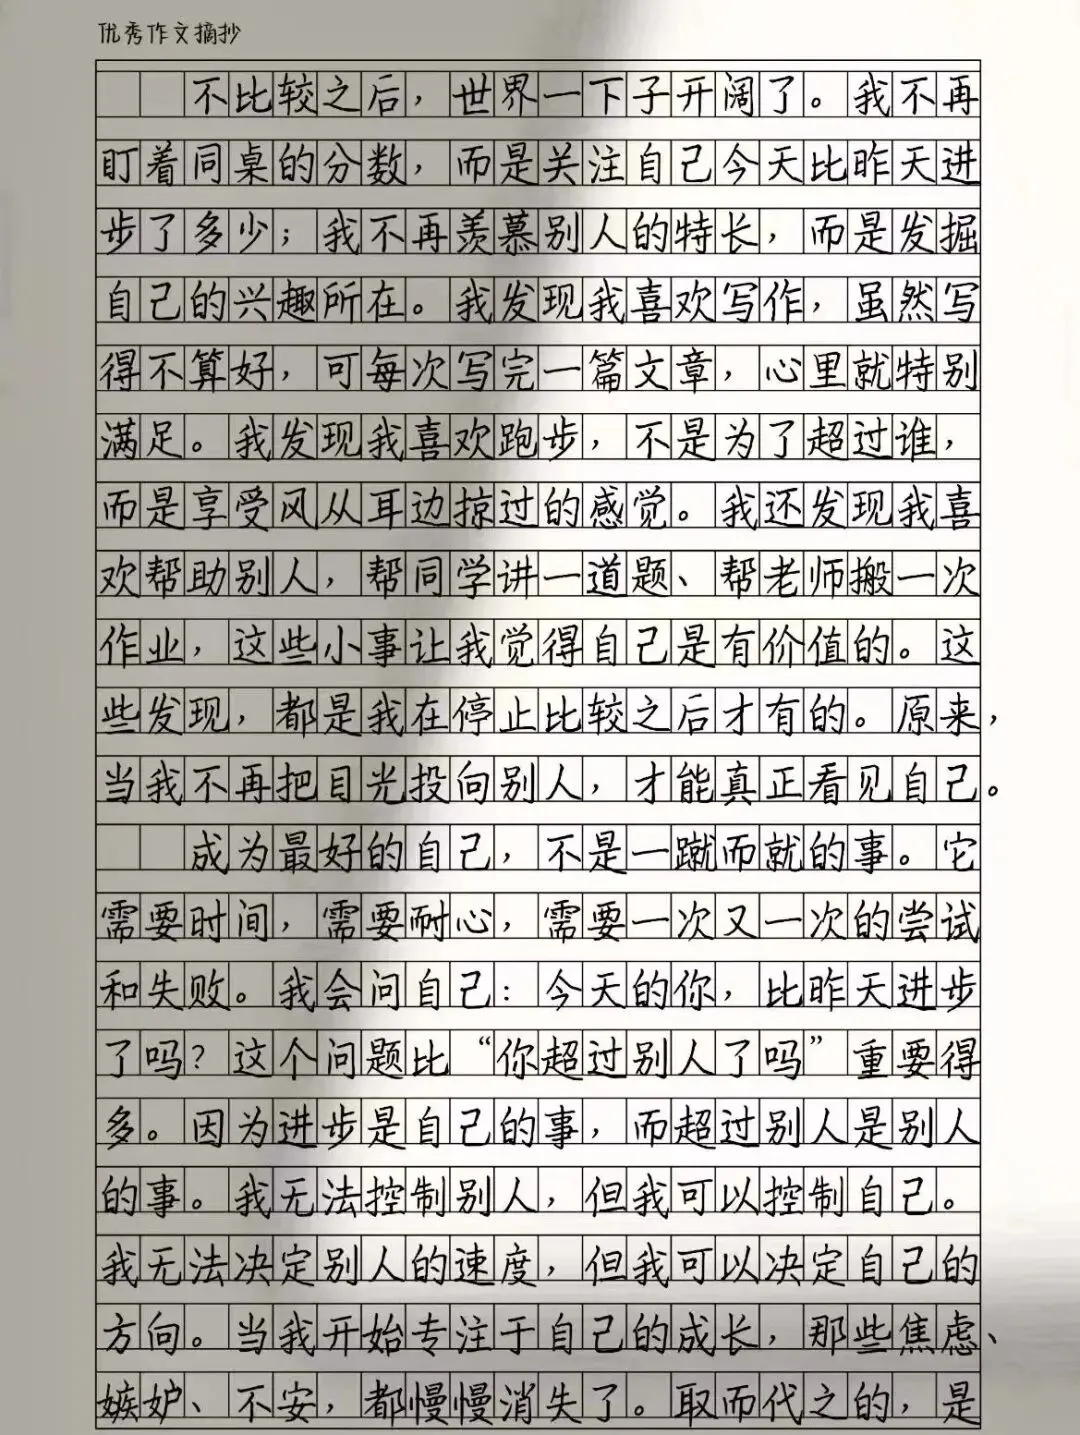 优秀作文摘抄
不比较之后，世界一下子开阔了。我不再
盯着同桌的分数，而是关注自己今天比昨天进
步了多少；我不再羡慕别人的特长，而是发掘
自己的兴趣所在。我发现我喜欢写作，虽然写
得不算好，可每次写完一篇文章，心里就特别
满足。我发现我喜欢跑步，不是为了超过谁，
而是享受风从耳边掠过的感觉。我还发现我喜
欢帮助别人，帮同学讲一道题、帮老师搬一次
作业，这些小事让我觉得自己是有价值的。这
些发现，都是我在停止比较之后才有的。原来，
当我不再把目光投向别人，才能真正看见自己。
成为最好的自己，不是一蹴而就的事。它
需要时间，需要耐心，需要一次又一次的尝试
和失败。我会问自己：今天的你，比昨天进步
了吗？这个问题比“你超过别人了吗”重要得
多。因为进步是自己的事，而超过别人是别人
的事。我无法控制别人，但我可以控制自己。
我无法决定别人的速度，但我可以决定自己的
方向。当我开始专注于自己的成长，那些焦虑、
嫉妒、不安，都慢慢消失了。取而代之的，是